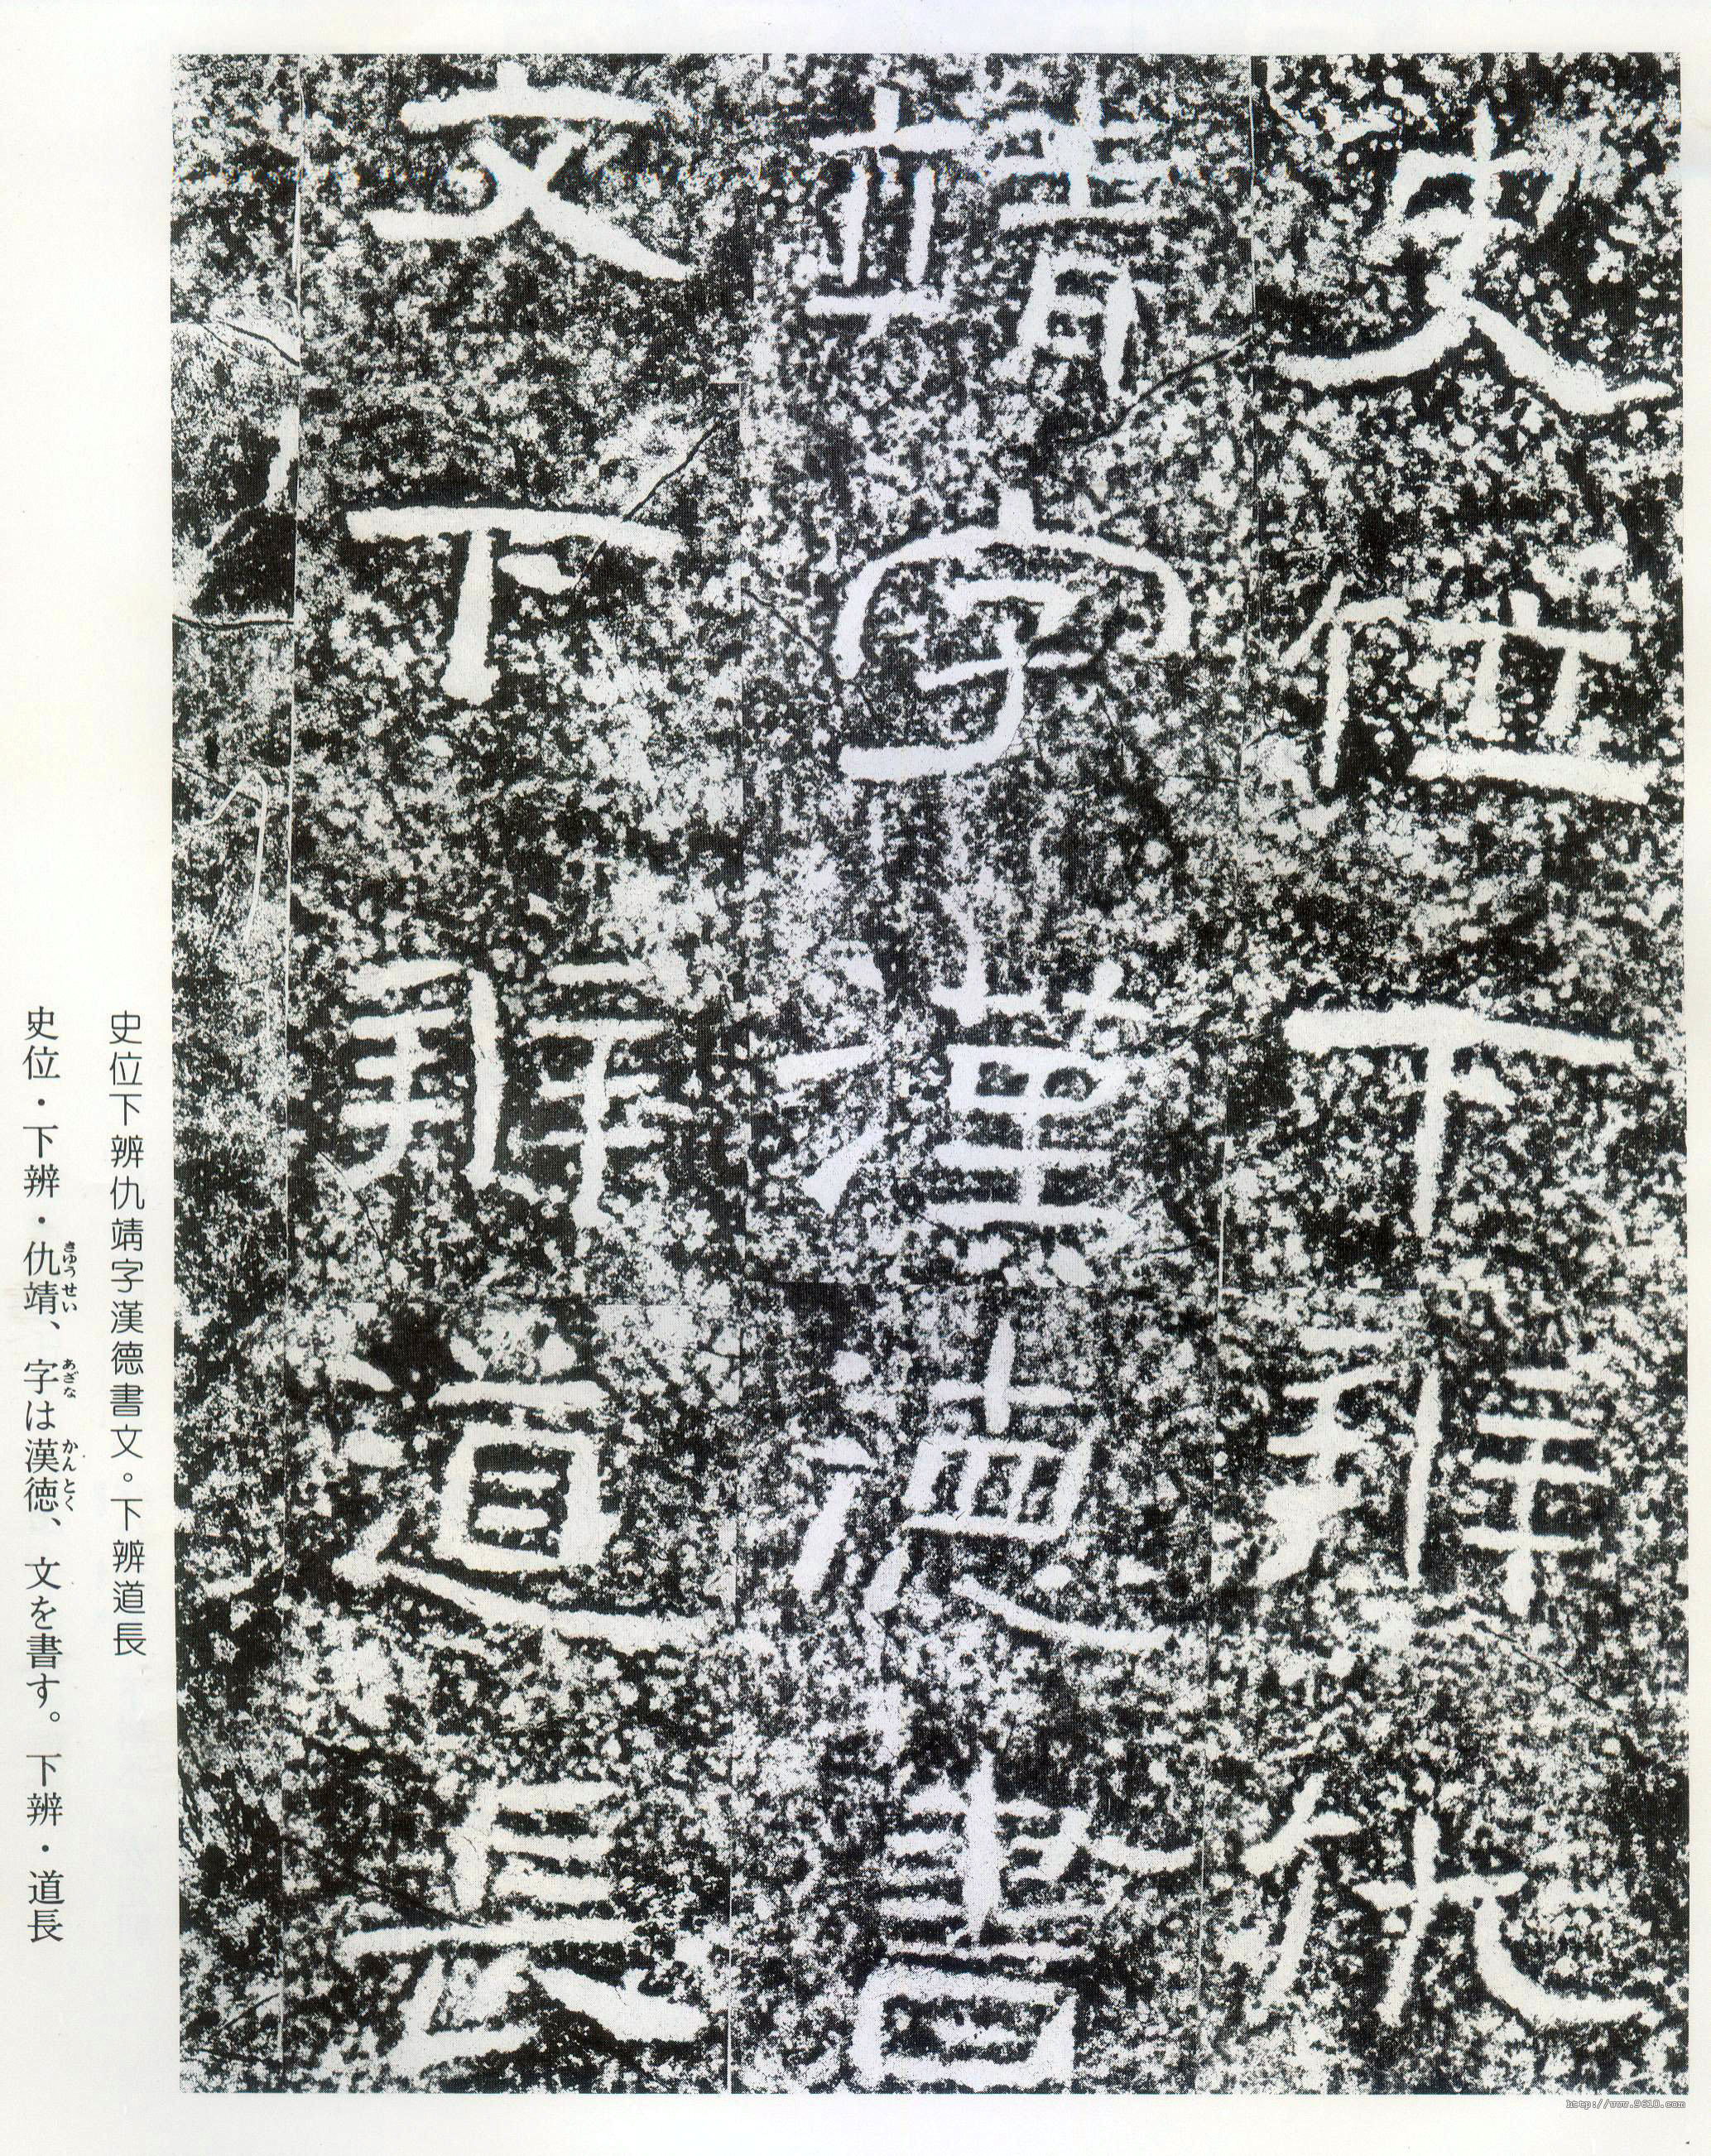 史位下辨仇
靖字漢德書
文下辨道長
史位下辨仇靖字漢德書文。下辨道長
史位・下辨・仇靖、字は漢徳、文を書す。下辨・道長
きゆうせい あざな かんとく
http://www.9610.com